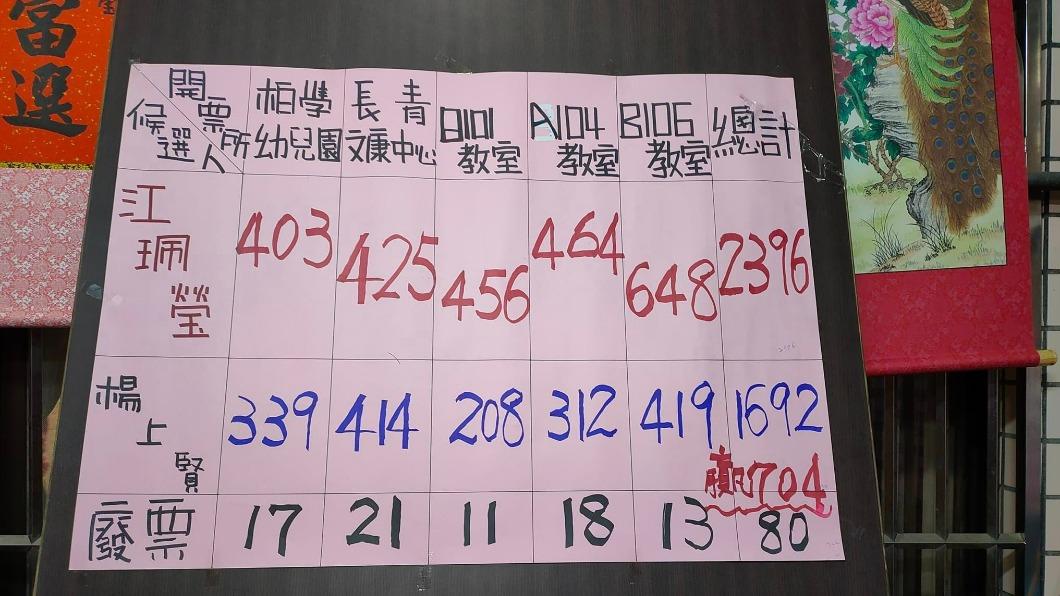 富
選
開票所
候選人
柏學
幼兒園
長青
文康中心
B101
教室
A104
教室
B106
教室
總計
江珮瑩
403
425
456
464
648
2396
楊上賢
339
414
208
312
419
1692
贏704
廢票
17
21
11
18
13
80